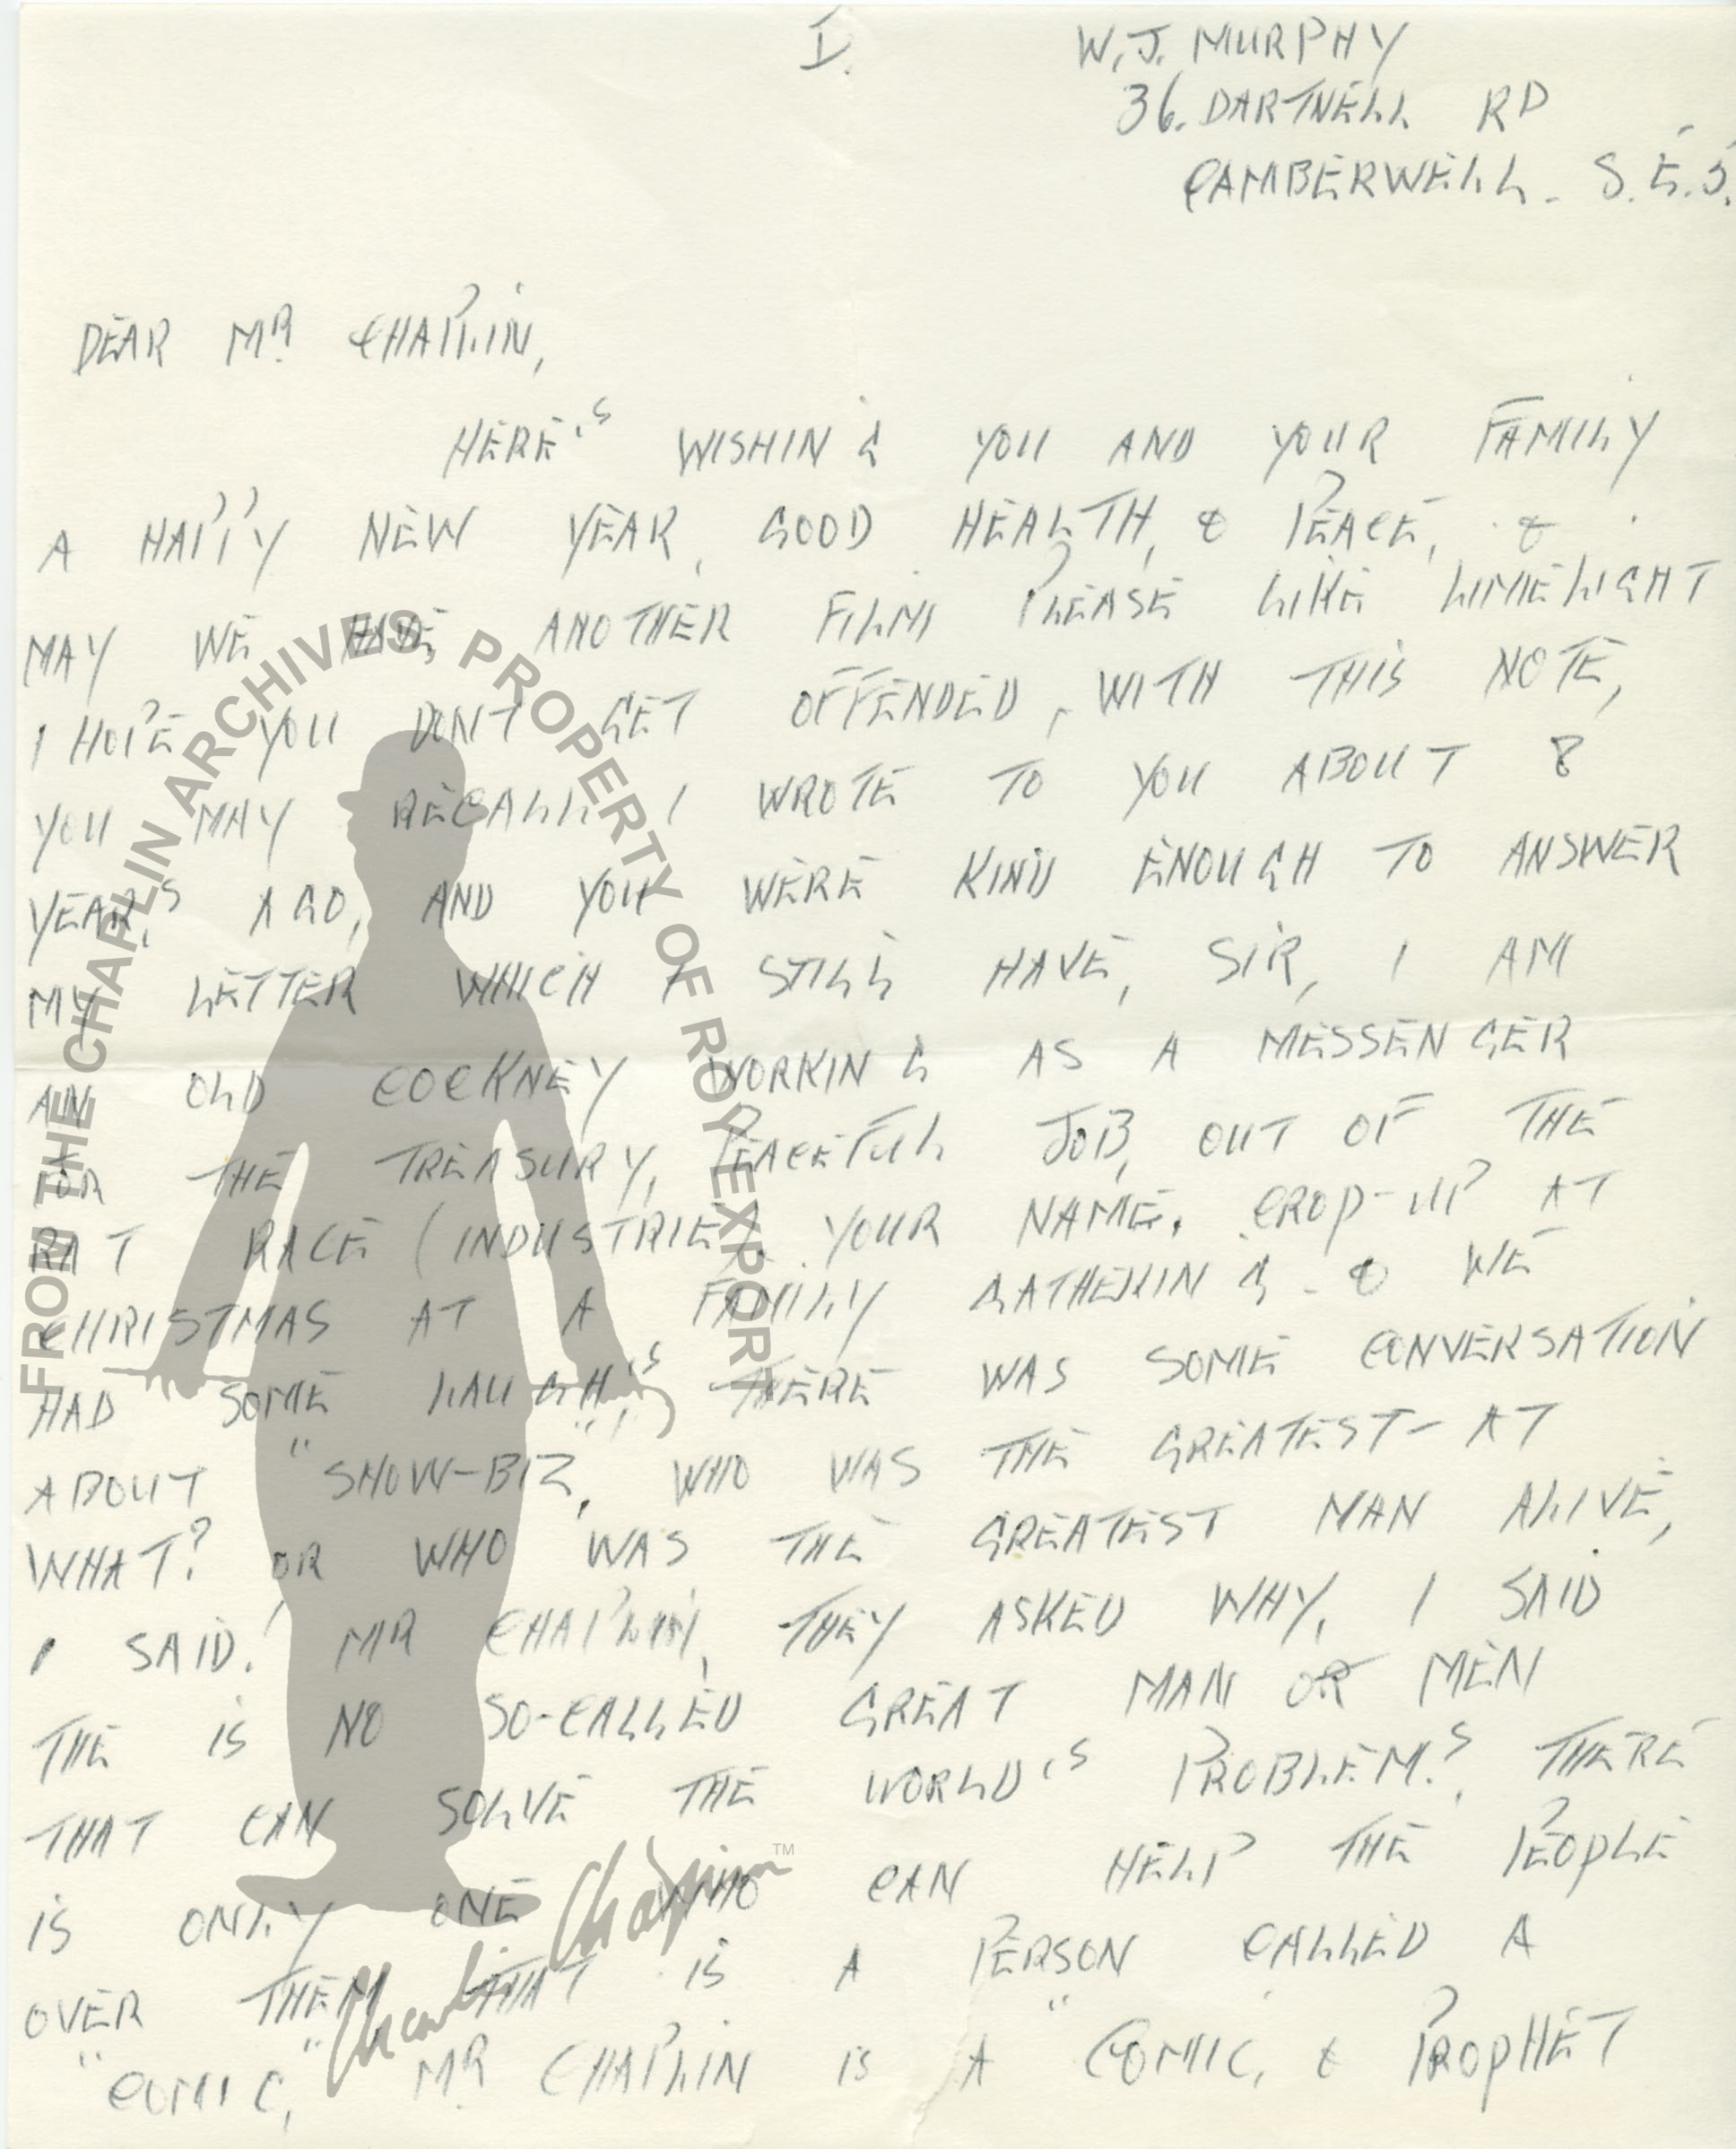 I.
W.J. MURPHY
36. DARTNELL RD
CAMBERWELL. S.E.5.
DEAR MR CHAPLIN,
HERE'S WISHING YOU AND YOUR FAMILY
A HAPPY NEW YEAR, GOOD HEALTH, & PEACE, &
MAY WE HAVE, ANOTHER FILM PLEASE LIKE LIMELIGHT
I HOPE YOU DONT GET OFFENDED, WITH THIS NOTE,
YOU MAY RECALL I WROTE TO YOU ABOUT 8
YEAR'S AGO, AND YOU WERE KIND ENOUGH TO ANSWER
MY LETTER WHICH I STILL HAVE, SIR, I AM
AN OLD COCKNEY WORKING AS A MESSENGER
FOR THE TREASURY, PEACEFULL JOB, OUT OF THE
RAT RACE (INDUSTRIE). YOUR NAME. CROP-UP AT
CHRISTMAS AT A FAMILY GATHERING. & WE
HAD SOME LAUGH'S THERE WAS SOME CONVERSATION
ABOUT "SHOW-BIZ," WHO WAS THE GREATEST-AT
WHAT? OR WHO WAS THE GREATEST MAN ALIVE,
I SAID! MR CHAPLIN, THEY ASKED WHY, I SAID
THE IS NO SO-CALLED GREAT MAN OR MEN
THAT CAN SOLVE THE WORLD'S PROBLEM'S, THERE
IS ONLY ONE WHO CAN HELP THE PEOPLE
OVER THEM THAT IS A PERSON CALLED A
"COMIC," MR CHAPLIN IS A "COMIC, & PROPHET
FROM THE CHAPLIN ARCHIVES, PROPERTY OF ROY EXPORT
Charlie Chaplin™